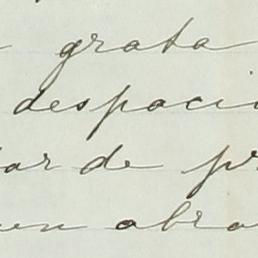 grata
despaci
ar de pr
en abra